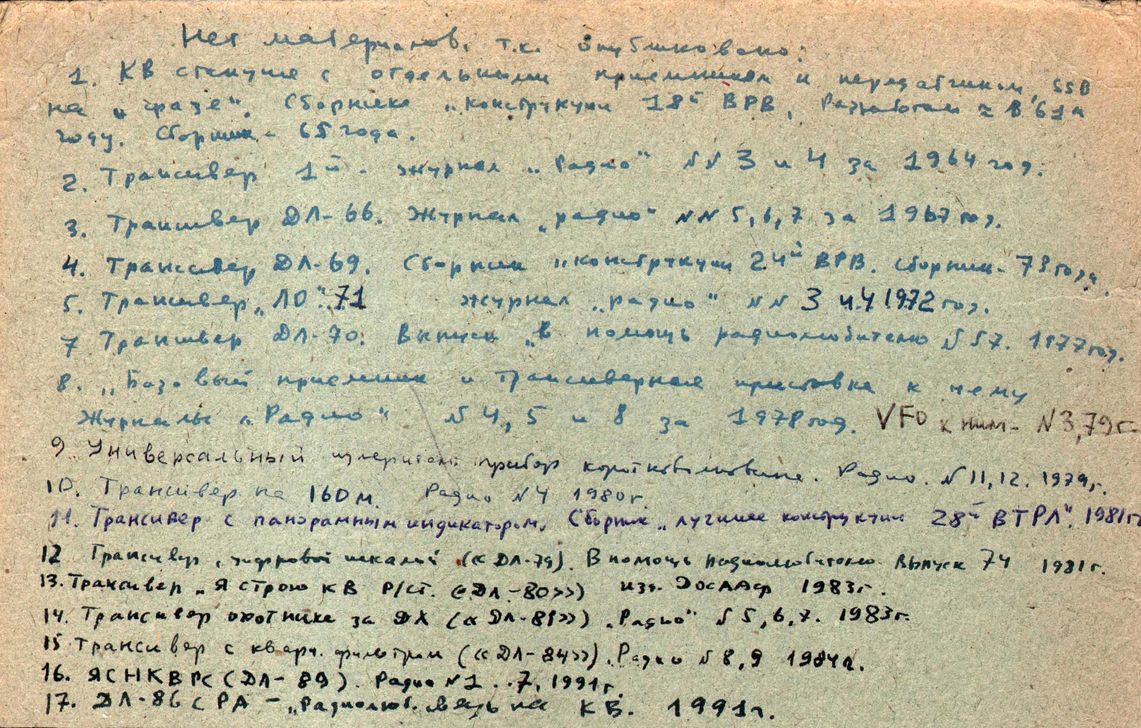 Нет материалов, т.к. Опубликовано:
1. КВ станция с отдельными приемником и передатчиком, SSB
на „фазе". Сборнике „конструкции 18й ВРВ, Разработан в '61м
году. Сборник - 65 года.
2. Трансивер 1й. журнал „Радио" NN 3 и 4 за 1964 год.
3. Трансивер ДЛ-66. Журнал „радио" NN 5,6,7 за 1967 год.
4. Трансивер ДЛ-69. Сборник „конструкции 24й ВРВ. Сборник - 73 года.
5. Трансивер „ЛО" 71 журнал „радио" NN 3 и 4 1972 год.
7 Трансивер ДЛ-70. Выпуск „В помощь радиолюбителю N 57. 1977 год.
8. „Базовый приемник и трансиверная приставка к нему
Журналы „Радио" N 4,5 и 8 за 1978 год. VFO к ним - N3,79г-
9. Универсальный измерител прибор коротковолновика. Радио. N 11,12. 1979г.
10. Трансивер на 160 м. Радио N4 1980г.
11. Трансивер с панорамным индикатором. Сборник „лучшие конструкции 28й ВТРЛ". 1981г.
12 Трансивер с цифровой шкалой («ДЛ-79). В помощь радиолюбителю Выпуск 74 1981г.
13. Трансивер „Я строю КВ Р/ст. «ДЛ-80») изд. ДОСААФ 1983г.
14. Трансивер охотника за ДХ («ДЛ-81») „Радио" N 5,6,7. 1983г.
15 Трансивер с кварц. фильтром («ДЛ-84»). Радио N 8,9 1984г.
16. ЯСНКВРС (ДЛ-89). Радио N1..7, 1991г.
17. ДЛ-86 с РА - „Радиолюб. связь на КВ. 1991г.